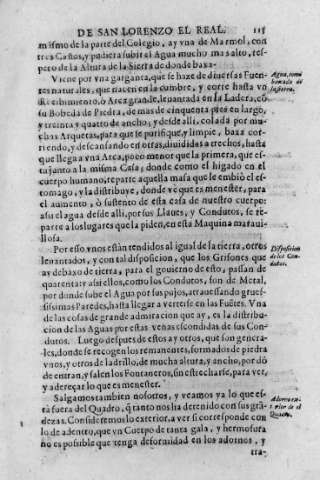 DE SAN LORENZO EL REAL. 115
mismo de la parte del Colegio, ay vna de Marmol, con
tres Caños, y pudiera subir el Agua mucho mas alto, res-
pecto de la Altura de la Sierra de donde baxa.
Viene por vna garganta, que se haze de diuersas Fuen-
tes naturales, que nacen en la cumbre, y corre hasta vn
Recibimiento, ò Arca grande, leuantada en la Ladera, cõ
su Bobeda de Piedra, de mas de cinquenta pies en largo,
y treinta y quatro de ancho; y desde alli, colada por mu-
chas Arquetas, para que se purifique, y limpie, baxa cor-
riendo, y descansando en otras, diuididas a trechos, hasta
que llega a vna Arca, poco menor que la primera, que es-
tà junto a la misma Casa; donde como el higado en el
cuerpo humano, reparte aquella masa que le embiò el es-
tomago, y la distribuye, donde vè que es menester, para
el aumento, ò sustento de esta casa de nuestro cuerpo:
assi el agua desde alli, por sus Llaues, y Condutos, se re-
parte a los lugares que la piden, en esta Maquina marauí-
llosa.
Por esso vnos estàn tendidos al igual de la tierra, otros
leuantados, y con tal disposicion, que los Grifones que
ay debaxo de tierra, para el gouierno de esto, passan de
quarenta; y assi ellos, como los Condutos, son de Metal,
por donde sube el Agua por sus passos, atrauessando grues-
sissimas Paredes, hasta llegar a verterse en las Fuẽtes. Vna
de las cosas de grande admiracion que ay, es la distribu-
cion de las Aguas por estas venas escondidas de sus Con-
dutos. Luego despues de estos ay otros, que son genera-
les, donde se recogen los remanentes, formados de piedra
vnos, y otros de ladrillo, de mucha altura, y ancho, por dõ
de entran, y salen los Fontaneros, sin estrecharse, para ver,
y adereçar lo que es menester.
Salgamos tambien nosotros, y veamos ya lo que es-
tà fuera del Quadro, q̃ tanto nos ha detenido con sus grã-
dezas. Consideremos lo exterior, a ver si corresponde con
lo de adentro, que vn Cuerpo de tanta gala, y hermosura
no es possible que tenga deformidad en los adornos, y
tra-
Agua, como
la sierra.
Disposicion
de los Con-
dutos.
rior de el
Quadro.